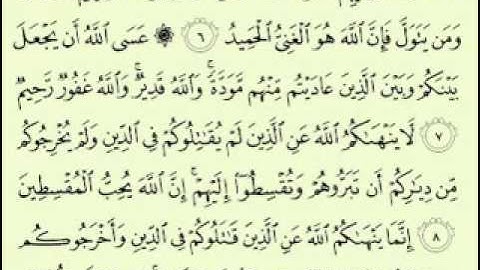 وَمَن يَتَوَلَّ فَإِنَّ ٱللَّهَ هُوَ ٱلْغَنِىُّ ٱلْحَمِيدُ ٦ ۞ عَسَى ٱللَّهُ أَن يَجْعَلَ
بَيْنَكُمْ وَبَيْنَ ٱلَّذِينَ عَادَيْتُم مِّنْهُم مَّوَدَّةً ۚ وَٱللَّهُ قَدِيرٌ ۚ وَٱللَّهُ غَفُورٌ رَّحِيمٌ
٧ لَّا يَنْهَىٰكُمُ ٱللَّهُ عَنِ ٱلَّذِينَ لَمْ يُقَـٰتِلُوكُمْ فِى ٱلدِّينِ وَلَمْ يُخْرِجُوكُم
مِّن دِيَـٰرِكُمْ أَن تَبَرُّوهُمْ وَتُقْسِطُوٓا۟ إِلَيْهِمْ ۚ إِنَّ ٱللَّهَ يُحِبُّ ٱلْمُقْسِطِينَ
٨ إِنَّمَا يَنْهَىٰكُمُ ٱللَّهُ عَنِ ٱلَّذِينَ قَـٰتَلُوكُمْ فِى ٱلدِّينِ وَأَخْرَجُوكُم